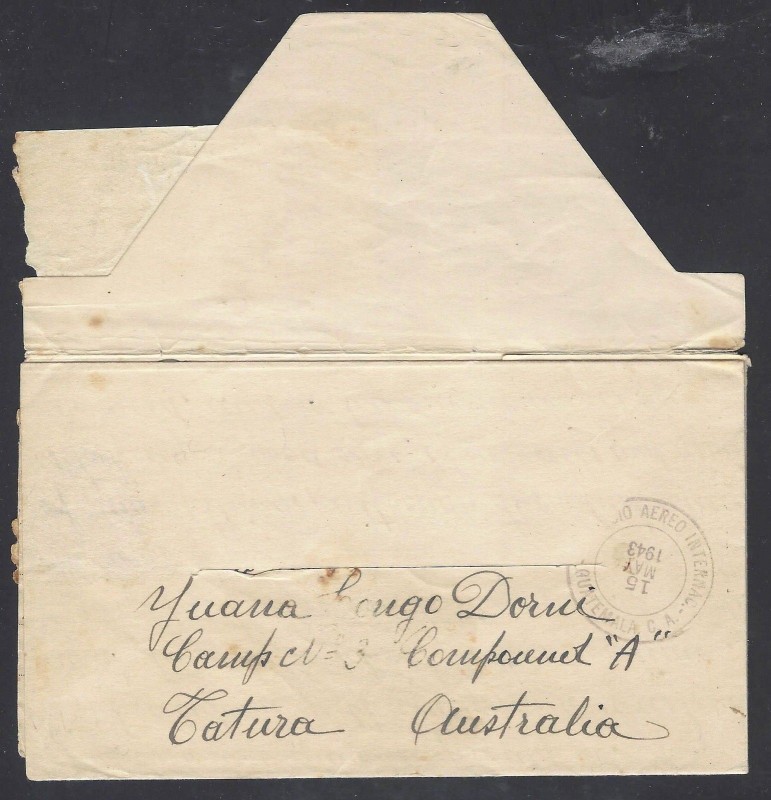 CIO AEREO INTERNAC.
15
MAY
1943
GUATEMALA C. A.
Yuana Congo Dorni
Camp No 3 Compound "A"
Tatura Australia